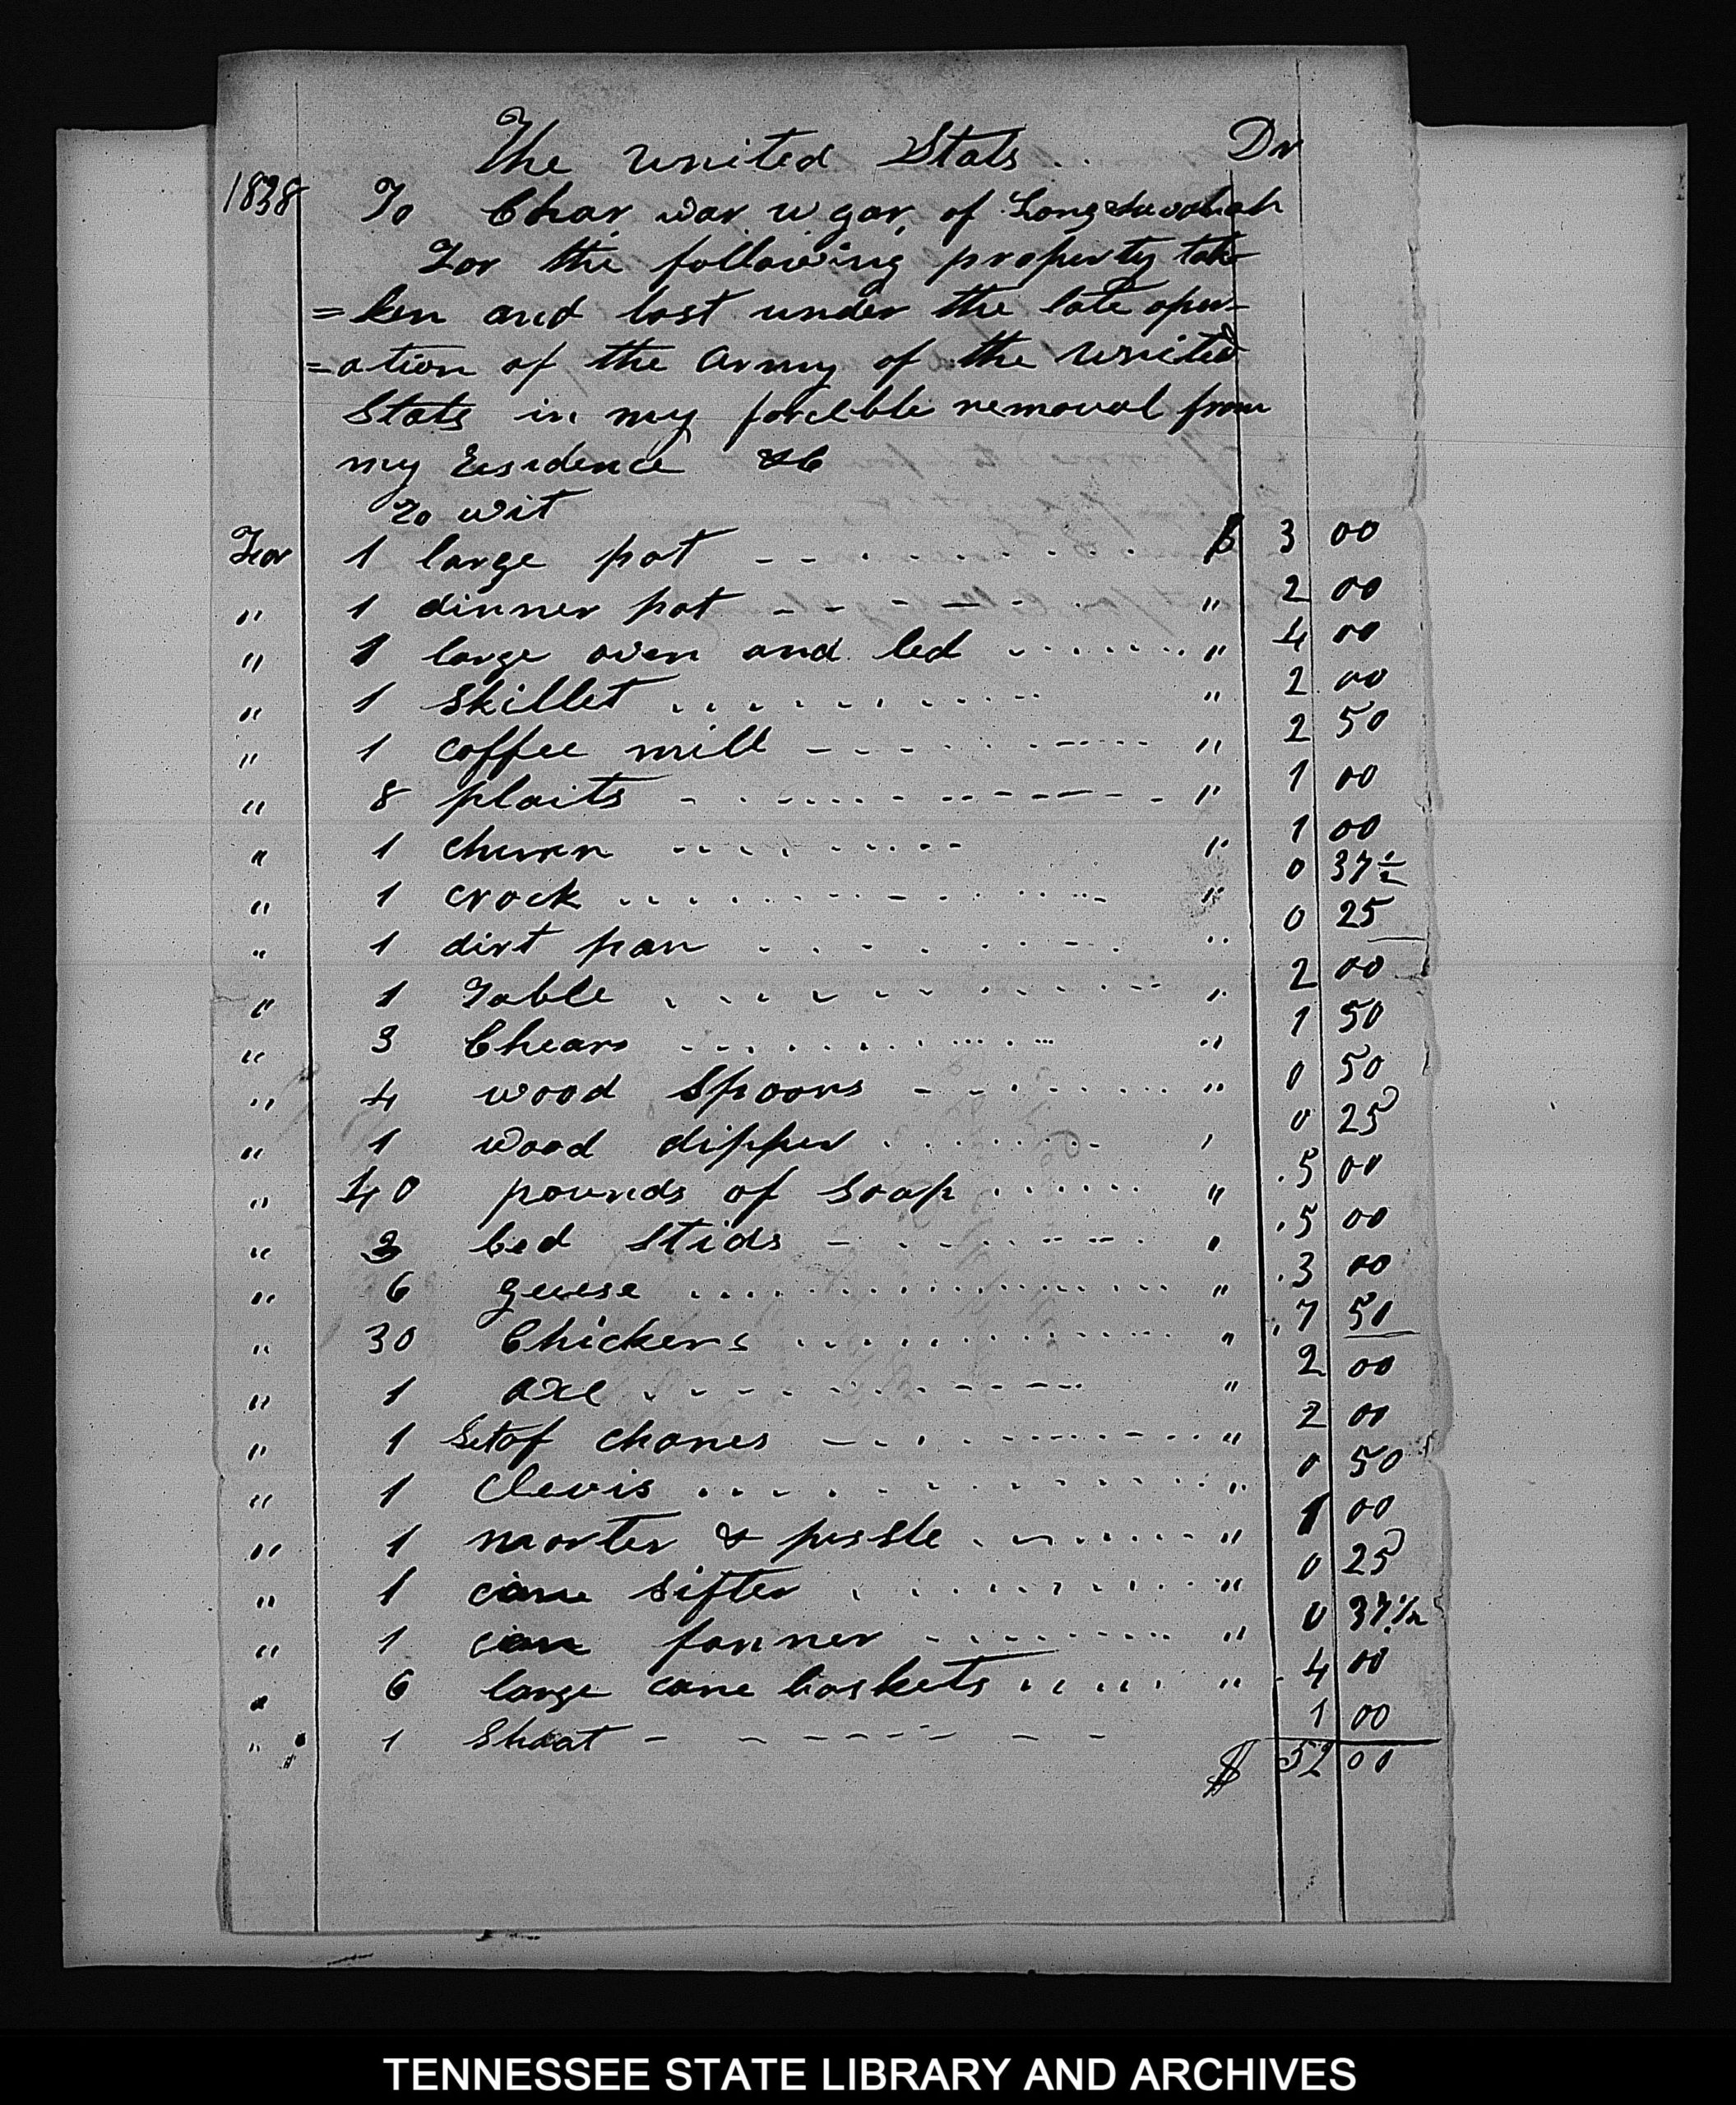 The United Stats .. Dr
1838 To Char, war, u gar, of Long Savanah
For the following property tak
= ken and lost under the late oper-
= ation of the Army of the United
Stats in my forcibli removal from
my Residence &c
To wit
For 1 large pot $ 3 00
" 1 dinner pot " 2 00
" 1 large oven and led " 4 00
" 1 Skillet " 2 00
" 1 coffee mill " 2 50
" 8 plaits " 1 00
" 1 churn " 1 00
" 1 crock " 0 37½
" 1 dirt pan " 0 25
" 1 Table " 2 00
" 3 Chears " 1 50
" 4 wood Spoons " 0 50
" 1 wood dipper " 0 25
" 40 pounds of Soap " 5 00
" 3 bed Stids " 5 00
" 6 geese " 3 00
" 30 Chickens " 7 50
" 1 axe " 2 00
" 1 Set of chanes " 2 00
" 1 Clevis " 0 50
" 1 morter & pessle " 1 00
" 1 cane sifter " 0 25
" 1 can fanner " 0 37½
" 6 large cane baskets " 4 00
" 1 Shoat 1 00
$ 52 00
TENNESSEE STATE LIBRARY AND ARCHIVES